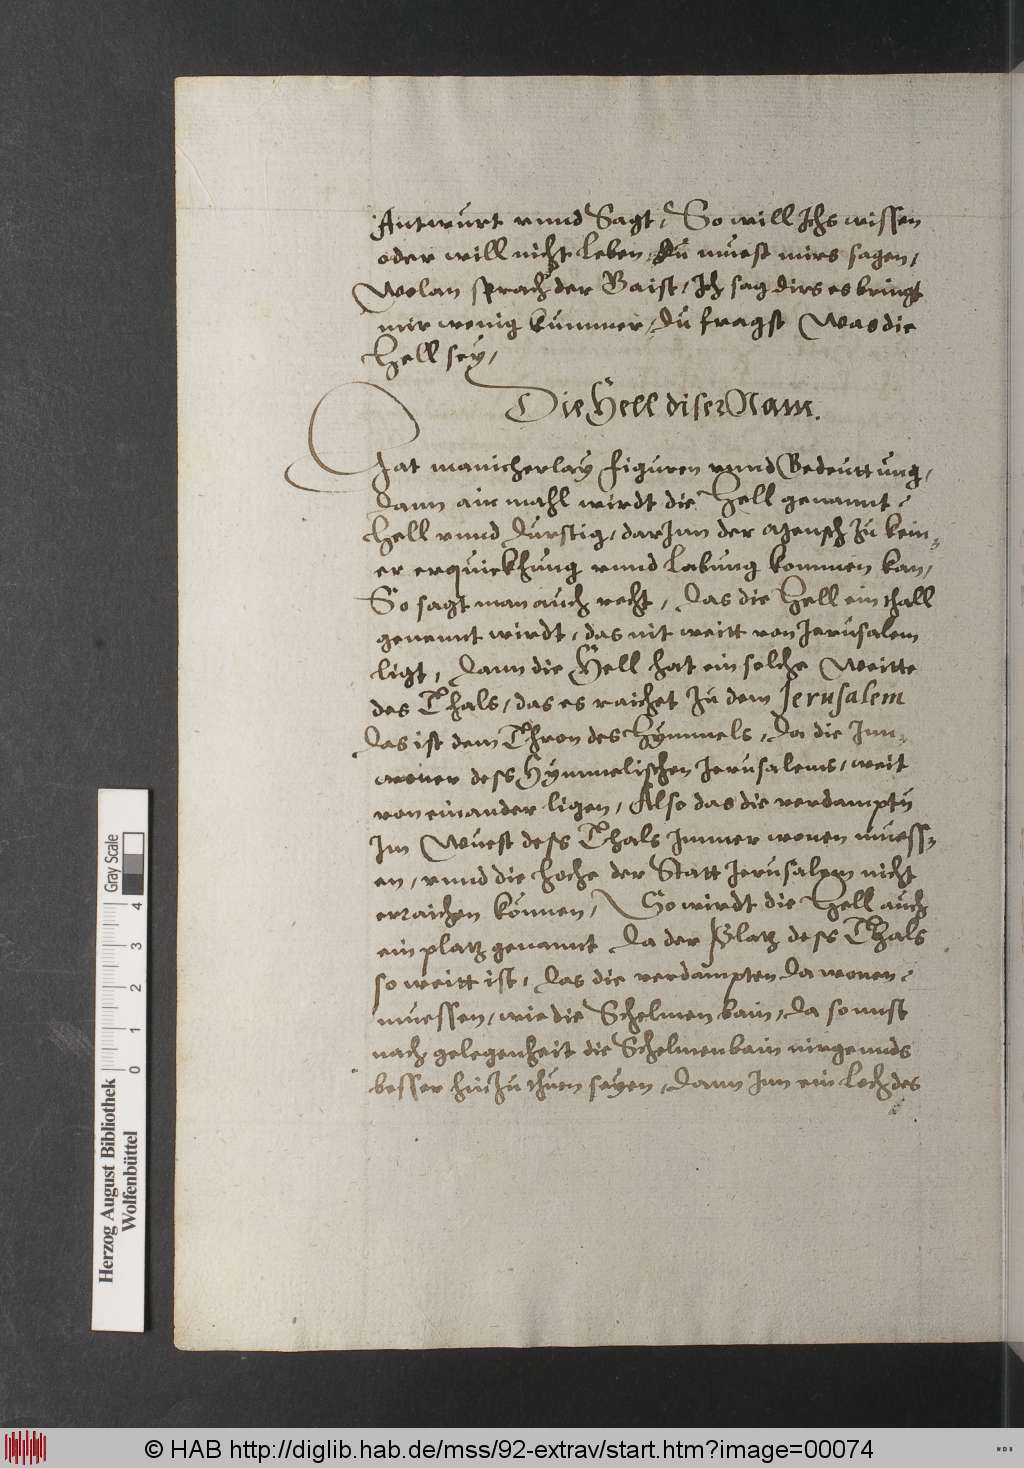 Antwurt vnnd Sagt, So will Ichs wissen
oder will nicht Leben, Du muest mirs sagen,
Wolan sprach der Gaist, Ich sag dirs es bringt
mir wenig kummer, Du fragst Was die
Hell sey,
Die Hell diser Nam.
Hat manicherlay figuren vnnd Bedeuttung,
Dann ain mahl wirdt die Hell genannt
Hell vnnd Durstig, darInn der Mensch zu kein-
er erquickhung vnnd Labung kommen kan,
So sagt man auch recht, Das die Hell ein thall
genennt wirdt, das nit weitt von Jerusalem
ligt, Dann die Hell hat ein solche Weitte
des Thals, das es raichet zu dem Jerusalem
Das ist dem Thron des Hymmels, Da die Inn-
woner dess Hymmelischen Jerusalems, weit
von einander ligen, Also das die verdampten
Im Wuest dess Thals Immer wonen muess-
en, vnnd die hoche der Statt Jerusalem nicht
erraichen können, So wirdt die Hell auch
ein platz genannt Da der Platz dess Thals
so weitt ist, Das die verdampten Da wonen
muessen, wie die Schelmen bain, Da sonnst
nach gelegenheit die Schelmenbain nirgennds
besser hinzuthuen seyen, Dann Inn ein Loch des
Herzog August Bibliothek
Wolfenbüttel
0 1 2 3 4
Gray Scale
© HAB http://diglib.hab.de/mss/92-extrav/start.htm?image=00074